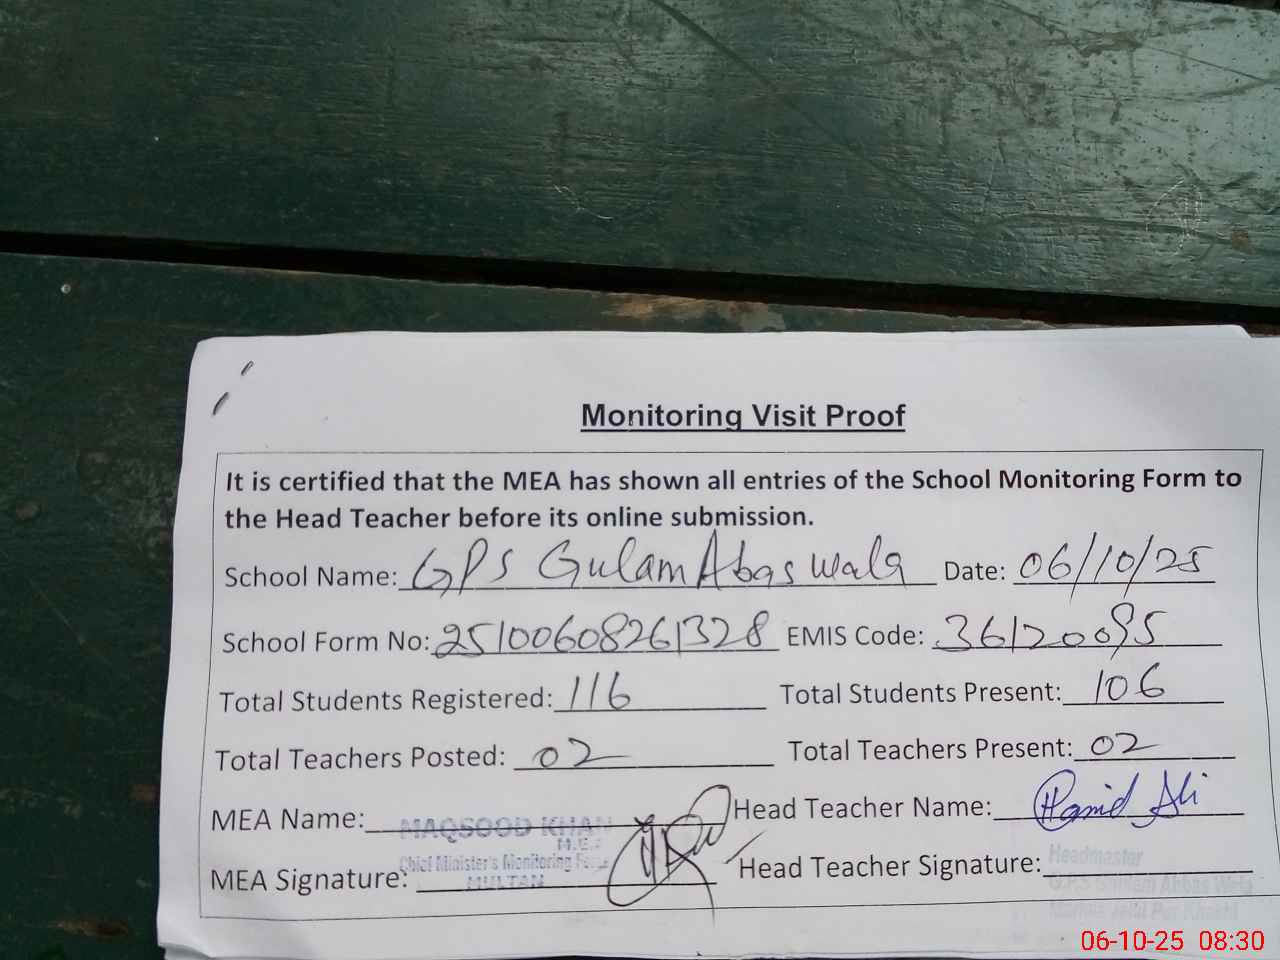 Monitoring Visit Proof
It is certified that the MEA has shown all entries of the School Monitoring Form to
the Head Teacher before its online submission.
School Name: GPS Gulam Abas wala Date: 06/10/25
School Form No: 25100608261328 EMIS Code: 36120095
Total Students Registered: 116 Total Students Present: 106
Total Teachers Posted: 02 Total Teachers Present: 02
MEA Name: MAQSOOD KHAN Head Teacher Name: Hamid Ali
Chief Minister's Monitoring Force
MEA Signature: MULTAN Head Teacher Signature:
Headmaster
G.P.S Ghulam Abbas Wala
06-10-25 08:30